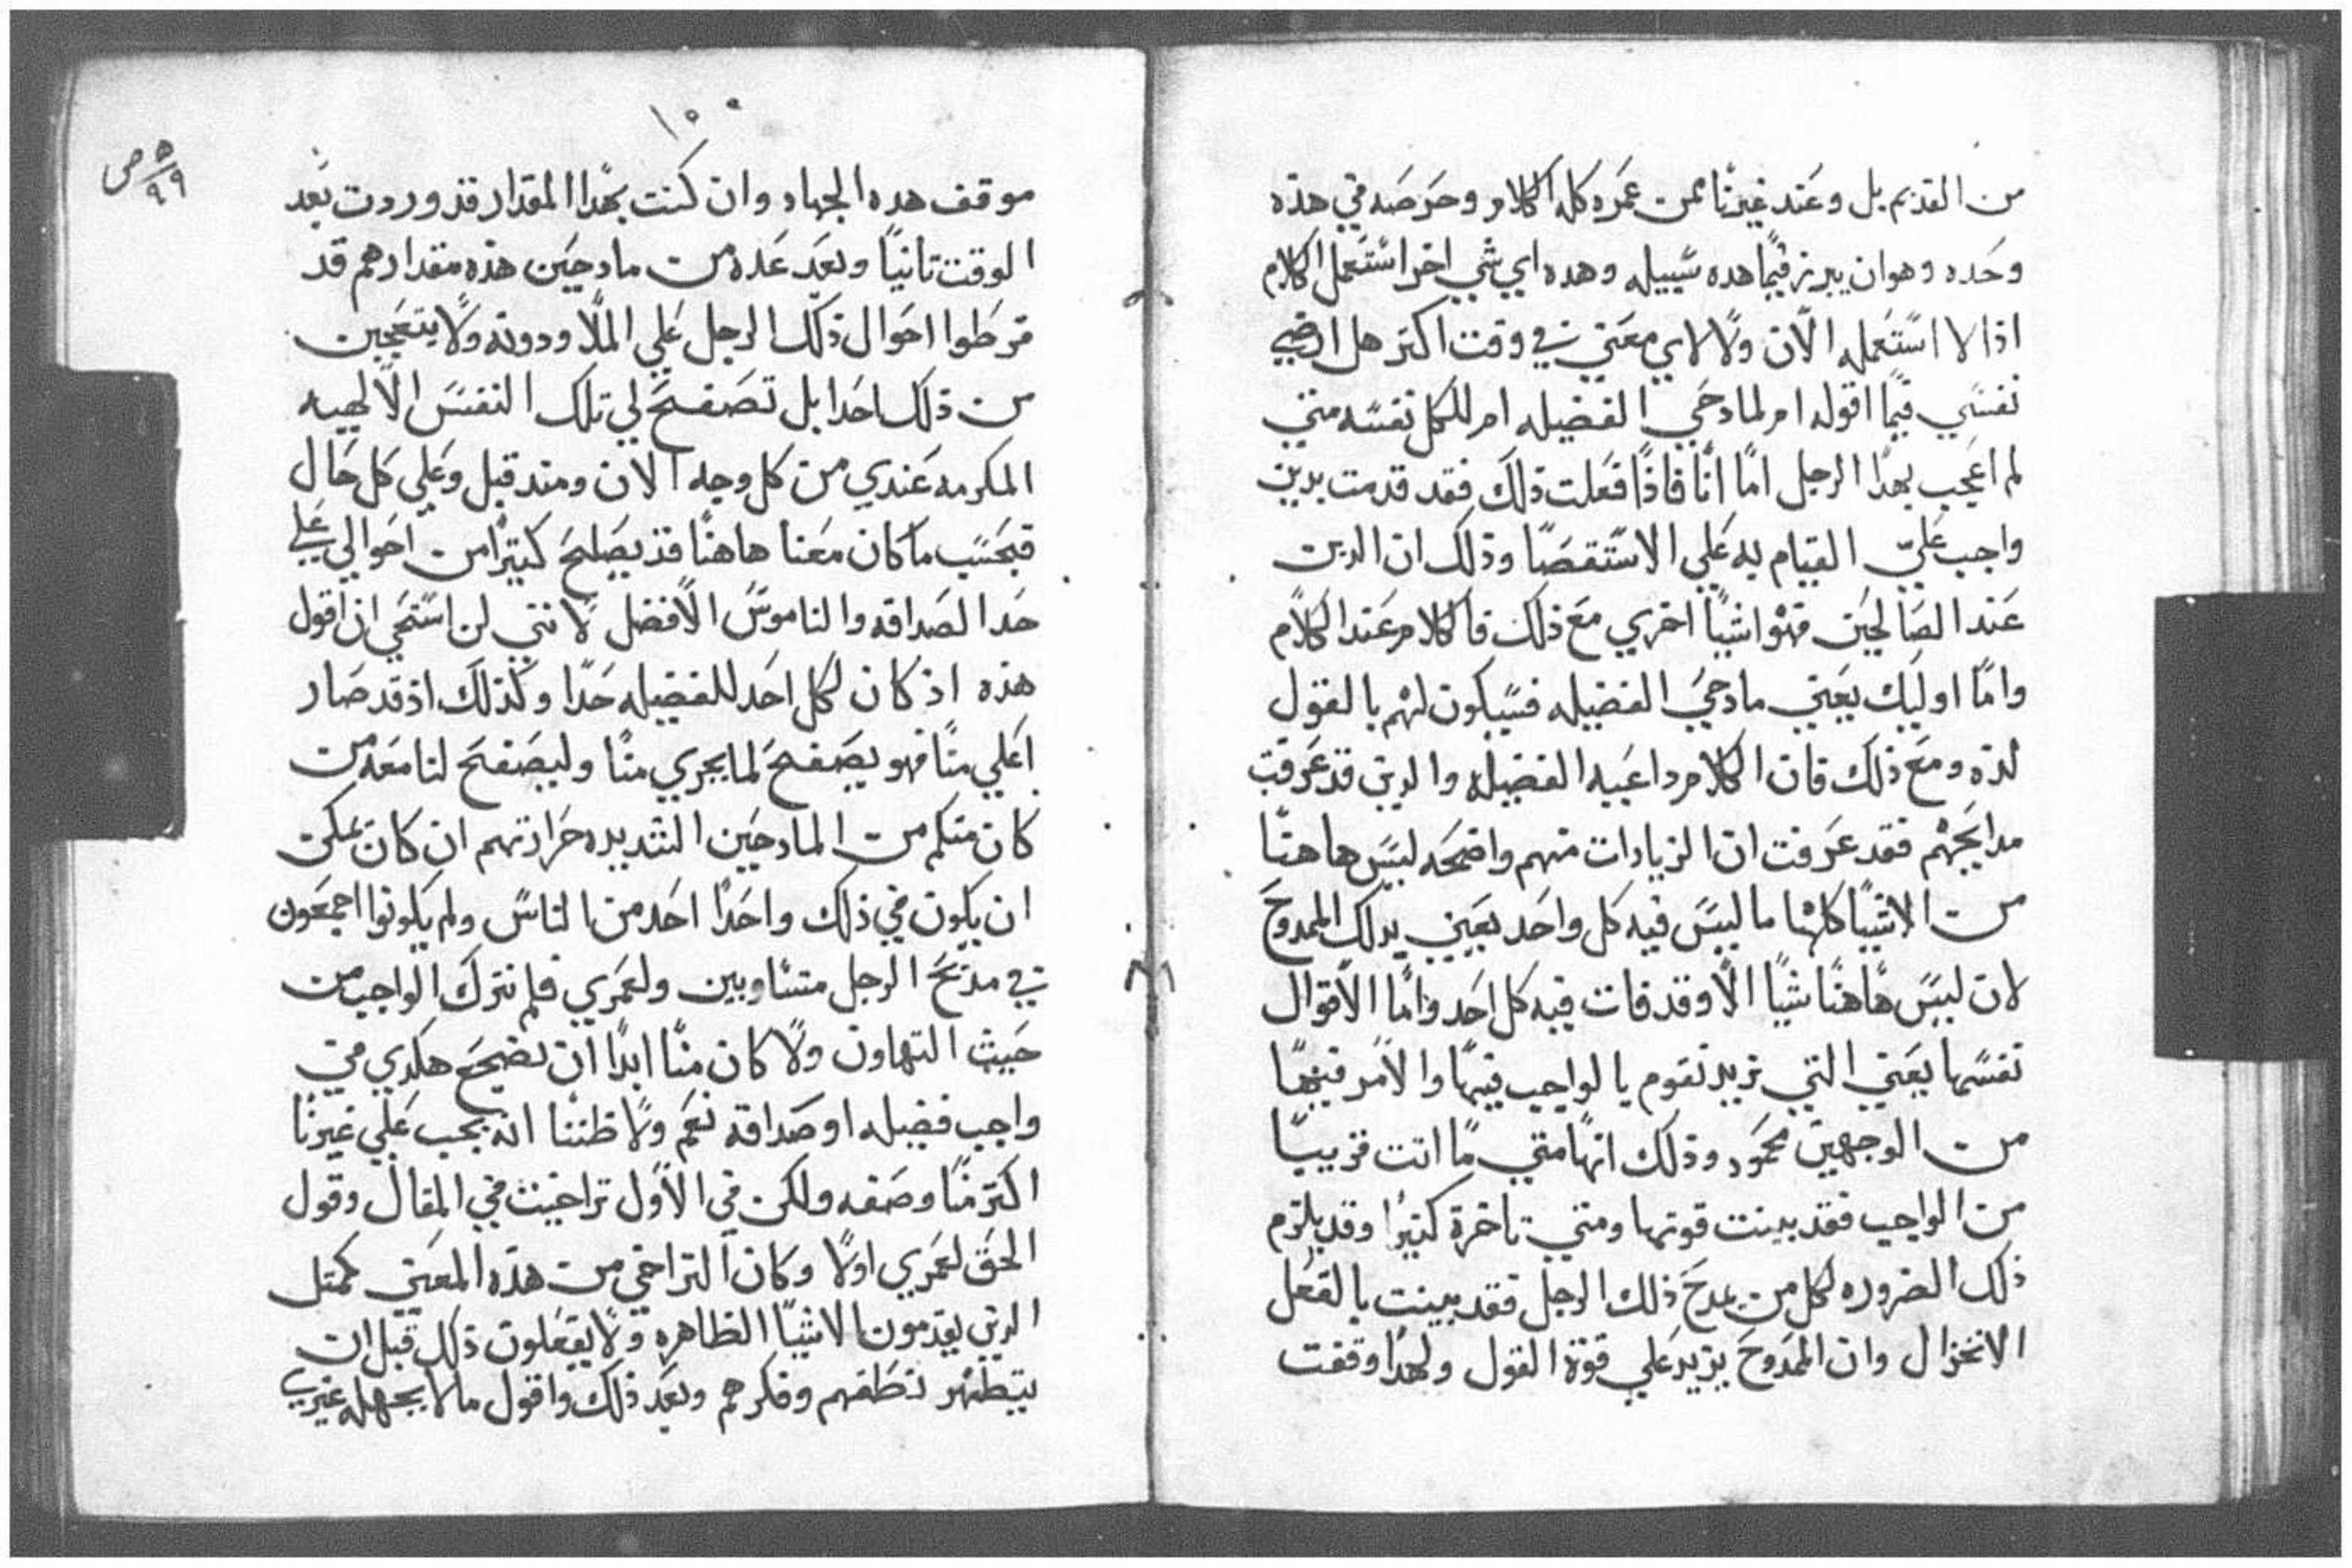 من القديم بل وعند غيرنا ممن عمره كله الكلام وحرصه في هذه
وحده وهو ان يبرز فيما هده سبيله وهده اي شي اخر استعمل الكلام
اذا لا استعمله الان ولا لاي معني في وقت اكتر هل ارضي
نفسي فيما اقوله ام لمادحي الفضيله ام للكل نفسه متي
لم اعجب بهدا الرجل اما انا فاذا فعلت ذلك فقد قدمت بدين
واجب علي القيام به علي الاستقصا وذلك ان الدين
عند الصالحين فهو اشيا اخري مع ذلك فالكلام عند الكلام
واما اوليك يعني مادحي الفضيله فسيكون لهم بالقول
لذه ومع ذلك فان الكلام داعيه الفضيله والدين قد عرفت
مدايحهم فقد عرفت ان الزيادات منهم واضحه ليس هاهنا
من الاشيا كلها ما ليس فيه كل واحد يعني بدلك الممدوح
لان ليس هاهنا شيا الا وقد فات فيه كل احد واما الاقوال
نفسها يعني التي تريد تقوم بالواجب فيها والامر فيها
من الوجهين محمود وذلك انها متي ما اتت قريبا
من الواجب فقد بينت قوتها ومتي تاخرة كتيرا وقد يلزم
ذلك الضروره لكل من يمدح ذلك الرجل فقد بينت بالفعل
الانخزال وان الممدوح يزيد علي قوة القول ولهدا وقفت
١٠٠
٥
٩٩ ص
موقف هده الجهاد وان كنت بهدا المقدار قد وردت بعد
الوقت تانيا وبعد عده من مادحين هذه مقدارهم قد
قرطوا احوال ذلك الرجل علي الملا ودونه ولا يتعجبن
من ذلك احدا بل تصفح لي تلك النفس الالهيه
المكرمه عندي من كل وجه الان ومند قبل وعلي كل حال
فبحسب ما كان معنا هاهنا قد يصلح كتيرا من احوالي علي
حد الصداقه والناموس الافضل لانني لن استحي ان اقول
هذه اذ كان لكل احد للفضيله حدا وكذلك اذ قد صار
اعلي منا فهو يصفح لما يجري منا وليصفح لنا معه من
كان منكم من المادحين الشديده حرارتهم ان كان يمكن
ان يكون في ذلك واحدا احد من الناس ولم يكونوا اجمعون
في مديح الرجل متساويين ولعمري فلم نترك الواجب من
حيث التهاون ولا كان منا ابدا ان نضجع هكدي في
واجب فضيله او صداقه نعم ولا ظننا انه يجب علي غيرنا
اكتر منا وصفه ولكن في الاول تراخيت في المقال وقول
الحق لعمري اولا وكان التراخي من هذه المعني كمتل
الدين يقدمون الاشيا الظاهره ولا يفعلون ذلك قبل ان
يتطهر نطقهم وفكرهم وبعد ذلك واقول ما لا يجهله غيري